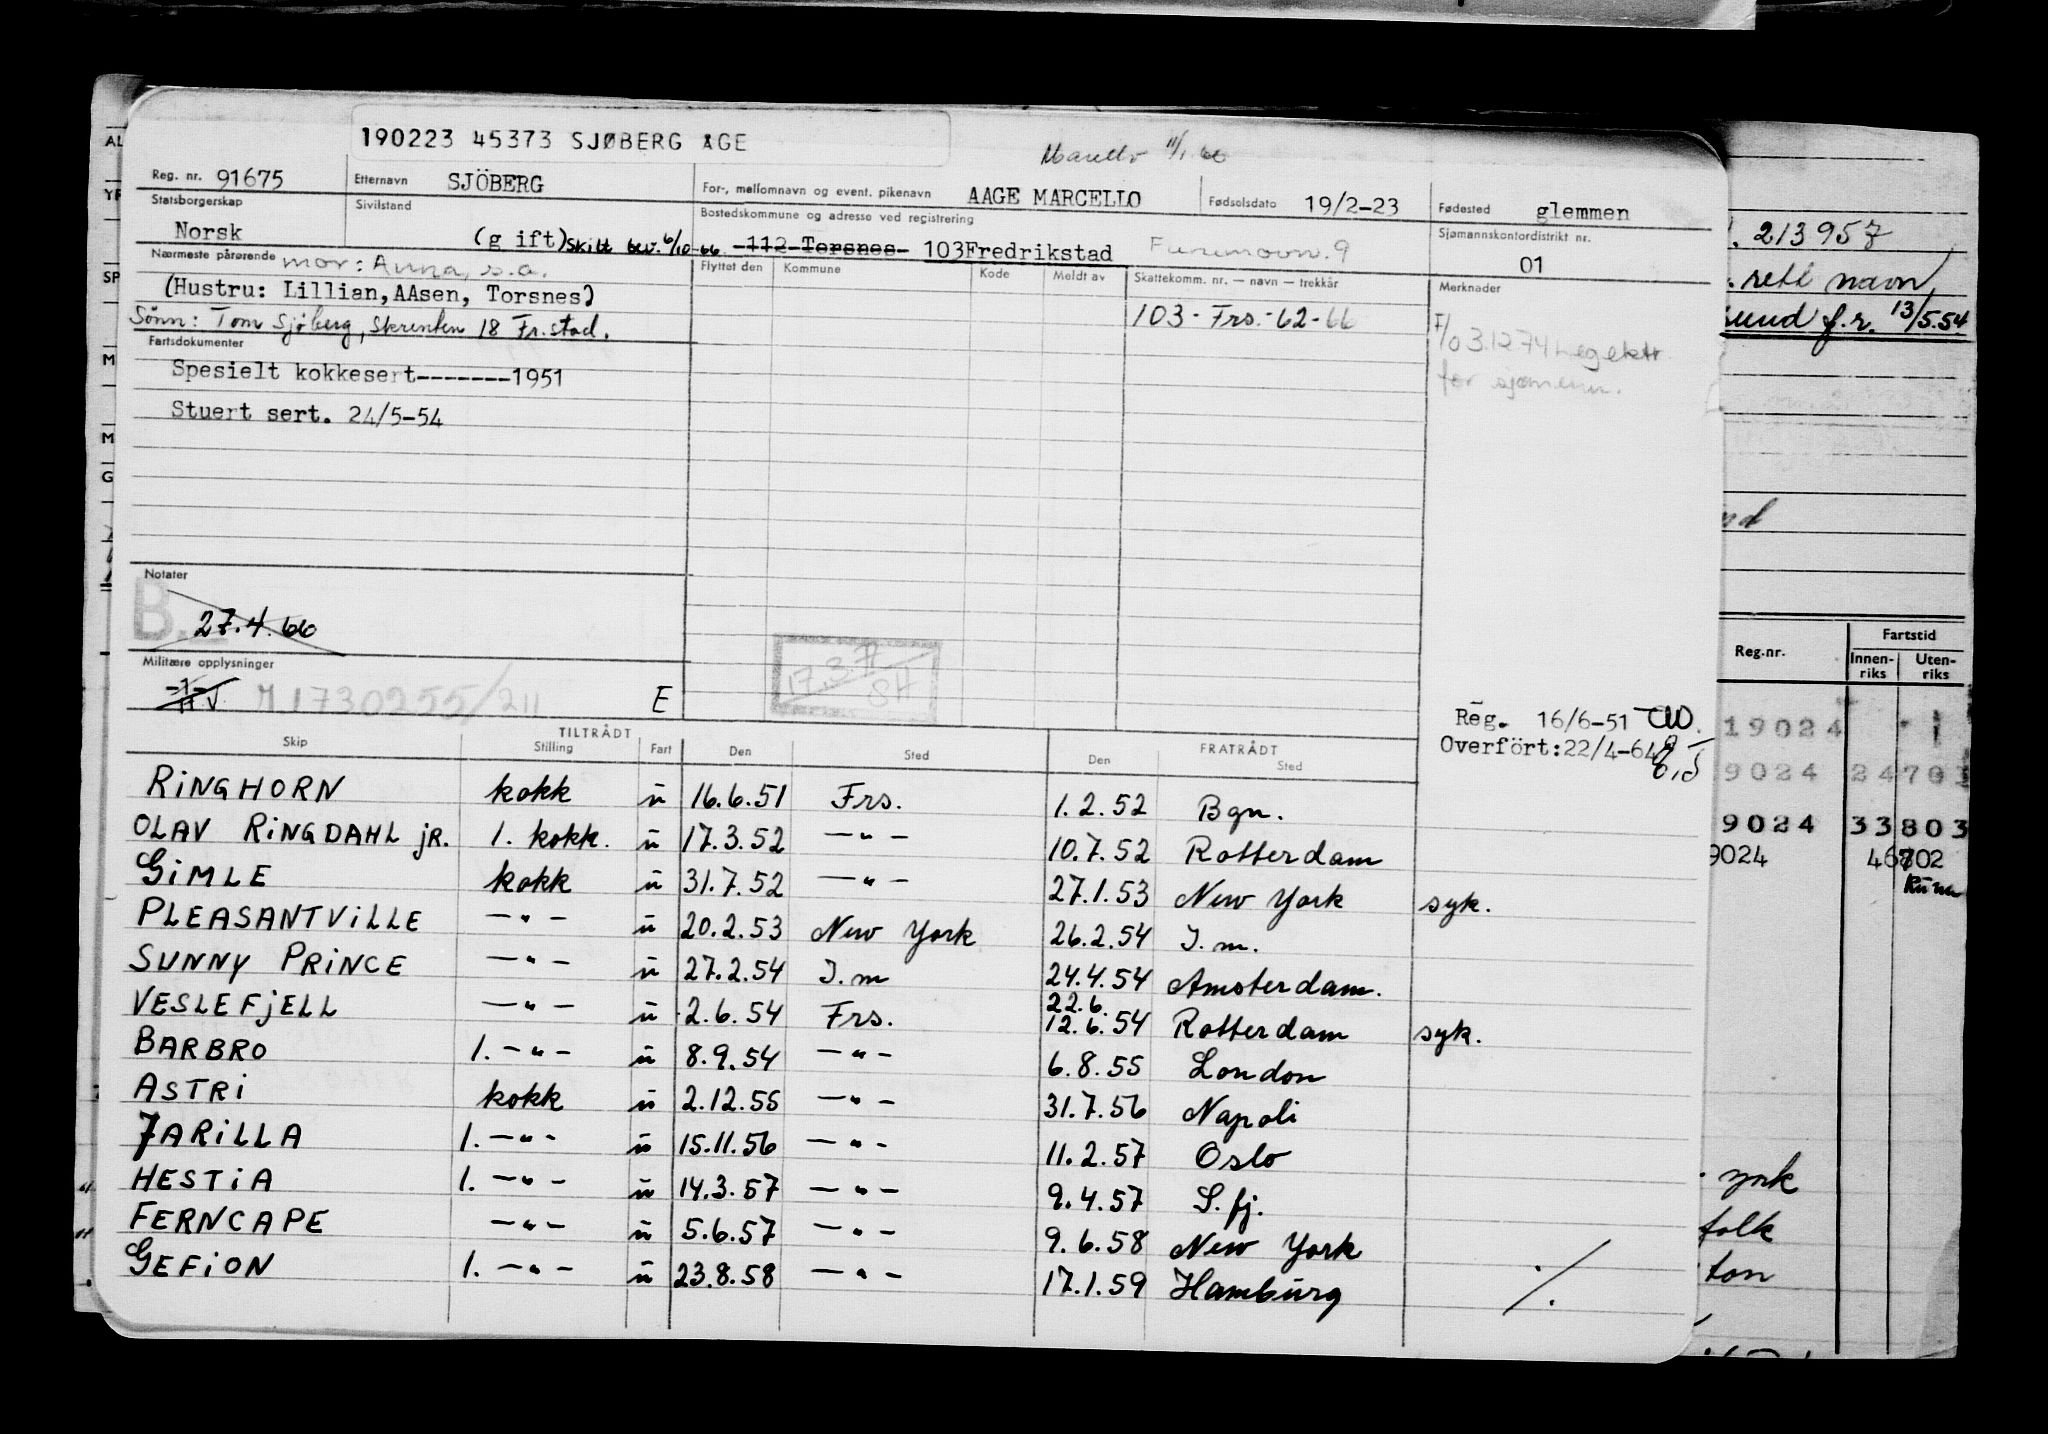 190223 45373 SJØBERG ÅGE
11/1 66
Reg. nr. 91675 Etternavn SJÖBERG For-, mellomnavn og event. pikenavn AAGE MARCELLO Fødselsdato 19/2-23 Fødested glemmen
Statsborgerskap Norsk Sivilstand (g ift) Skilt bev. 6/10-66 Bostedskommune og adresse ved registrering -112-Torsnes- 103Fredrikstad Sjømannskontordistrikt nr. 01
Nærmeste pårørende mor: Anna, s.a.
(Hustru: Lillian, AAsen, Torsnes)
Sönn: Tom Sjöberg, Skrenten 18 Fr.stad.
Flyttet den Kommune Kode Meldt av Skattekomm. nr. — navn — trekkår
103 - Frs. - 62 - 66
Merknader
F/0 31274 Legeattr.
for sjømenn.
Fartsdokumenter
Spesielt kokkesert-------1951
Stuert sert. 24/5-54
Notater
B.
27.4.66
Militære opplysninger
M 1730255/211 E
17.3.77
84
Reg. 16/6-51
Overfört:22/4-64
TILTRÅDT FRATRÅDT
Skip Stilling Fart Den Sted Den Sted
RINGHORN kokk u 16.6.51 Frs. 1.2.52 Bgn.
OLAV RINGDAHL JR. 1. kokk. u 17.3.52 —"— 10.7.52 Rotterdam
GIMLE kokk u 31.7.52 —"— 27.1.53 New York syk.
PLEASANTVILLE —"— u 20.2.53 New York 26.2.54 I.m.
SUNNY PRINCE —"— u 27.2.54 I.m 24.4.54 Amsterdam.
VESLEFJELL —"— u 2.6.54 Frs. 22.6. 12.6.54 Rotterdam syk.
BARBRO 1. —"— u 8.9.54 —"— 6.8.55 London
ASTRI kokk u 2.12.55 —"— 31.7.56 Napoli
JARILLA 1. —"— u 15.11.56 —"— 11.2.57 Oslo
HESTIA 1. —"— u 14.3.57 —"— 9.4.57 S.fj.
FERNCAPE —"— u 5.6.57 —"— 9.6.58 New York
GEFION 1. —"— u 23.8.58 —"— 17.1.59 Hamburg
./.
213957
rett navn
sund f.r. 13/5.54
Reg.nr. Fartstid
Innen-riks Uten-riks
19024
9024 24703
9024 33803
9024